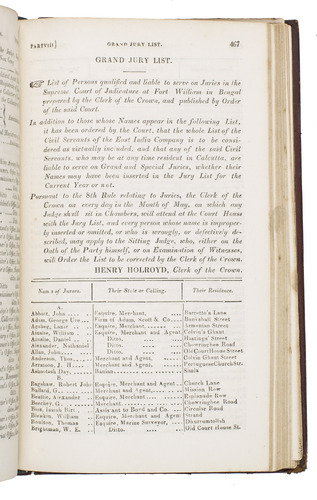 PART VIII] GRAND JURY LIST. 467
GRAND JURY LIST.
List of Persons qualified and liable to serve on Juries in the
Supreme Court of Judicature at Fort William in Bengal
prepared by the Clerk of the Crown, and published by Order
of the said Court.
In addition to those whose Names appear in the following List,
it has been ordered by the Court, that the whole List of the
Civil Servants of the East India Company is to be consi-
dered as virtually included, and that any of the said Civil
Servants, who may be at any time resident in Calcutta, are
liable to serve on Grand and Special Juries, whether their
Names may have been inserted in the Jury List for the
Current Year or not.
Pursuant to the 8th Rule relating to Juries, the Clerk of the
Crown on every day in the Month of May, on which any
Judge shall sit in Chambers, will attend at the Court House
with the Jury List, and every person whose name is improper-
ly inserted or omitted, or who is wrongly, or defectively de-
scribed, may apply to the Sitting Judge, who, either on the
Oath of the Party himself, or on Examination of Witnesses,
will Order the List to be corrected by the Clerk of the Crown.
HENRY HOLROYD, Clerk of the Crown.
Names of Jurors. Their State or Calling. Their Residence.
A.
Abbott, John Esquire, Merchant, Barretto's Lane
Adam, George Firm of Adam, Scott & Co. Bankshall Street
Agabeg, Esquire, Merchant, Armenian Street
Ainslie, William Esquire, Merchant and Agent Colvin's Ghaut
Ainslie, Daniel Ditto. Hastings' Street
Alexander, Nathaniel Ditto. Chowringhee Road
Allan, John Ditto. Old Court House Street
Anderson, Thos. Merchant and Agent, Colvin Ghaut Street
Arratoon, J. H. Merchant and Agent, Portuguese Church Str.
Merchant
B.
Bagshaw, Robert John Esquire, Merchant and Agent Church Lane
Ballard, G. Merchant and Agent, Mission Row
Beattie, Alexander Esquire, Merchant, Esplanade Row
Beecher, G. Merchant, Chowringhee Road
Bion, Isaiah Assistant to Bord and Co. Circular Road
William Esquire, Merchant and Agent Strand
Boulton, Thomas Esquire, Marine Surveyor, Dhurrumtollah
Brightman, W. E. Ditto. Old Court House St.